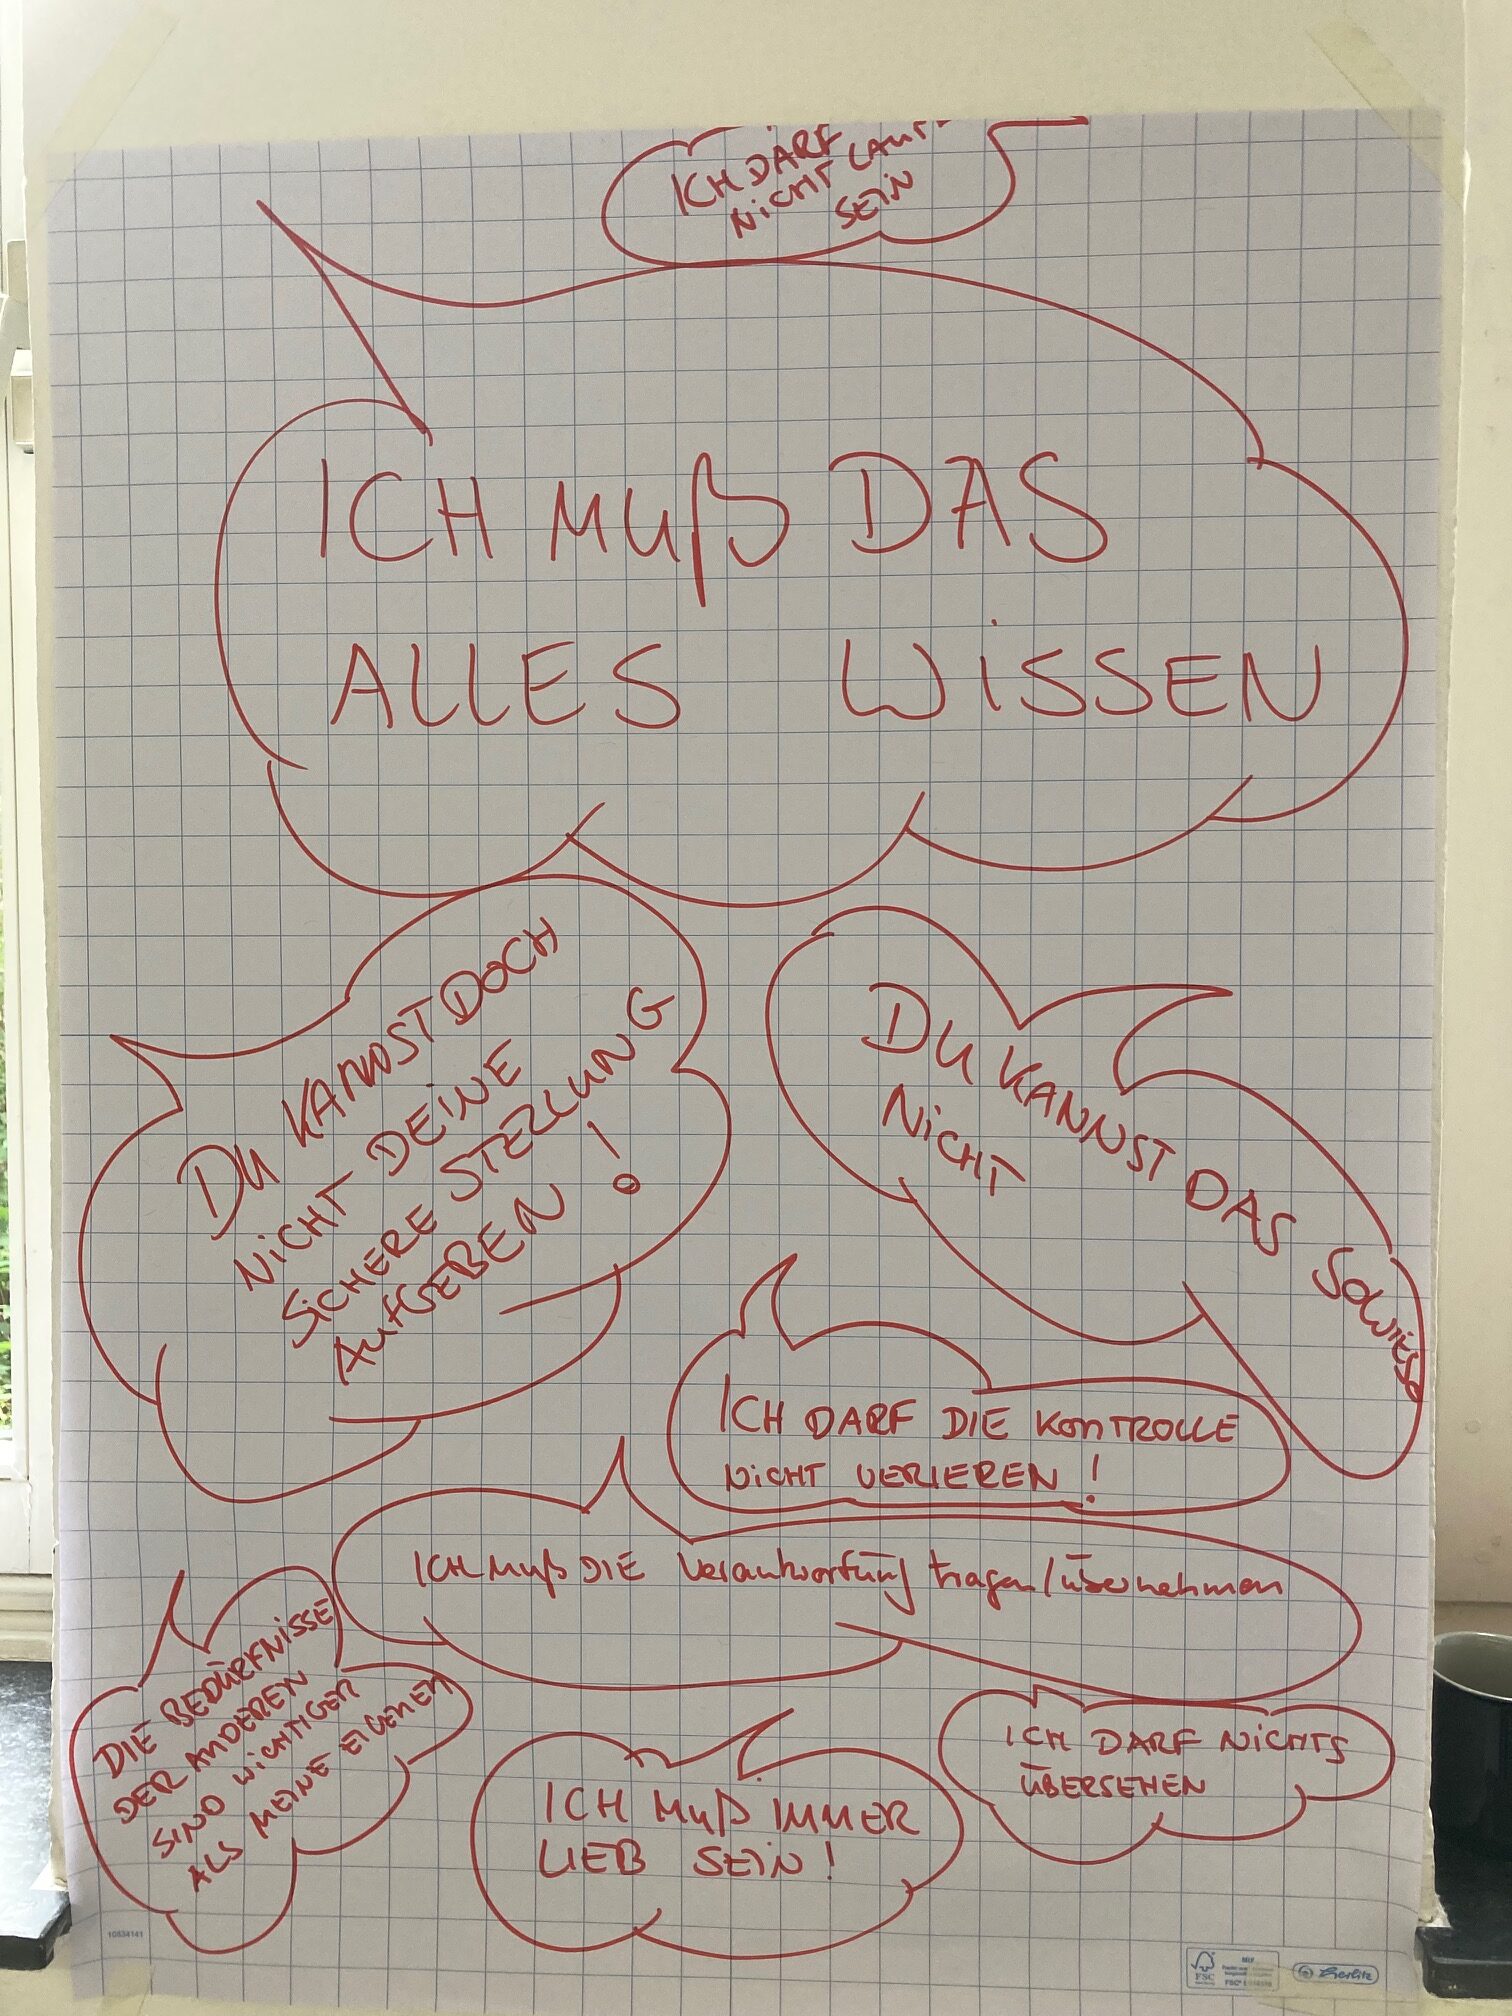 ICH DARF
NICHT LAUT
SEIN
ICH MUß DAS
ALLES WISSEN
DU KANNST DOCH
NICHT DEINE
SICHERE STELLUNG
AUFGEBEN !
DU KANNST DAS SOWIESO
NICHT
ICH DARF DIE KONTROLLE
NICHT VERLIEREN !
ICH MUß DIE Verantwortung tragen/übernehmen
DIE BEDÜRFNISSE
DER ANDEREN
SIND WICHTIGER
ALS MEINE EIGENEN
ICH MUß IMMER
LIEB SEIN !
ICH DARF NICHTS
ÜBERSEHEN
10834141
FSC
herlitz